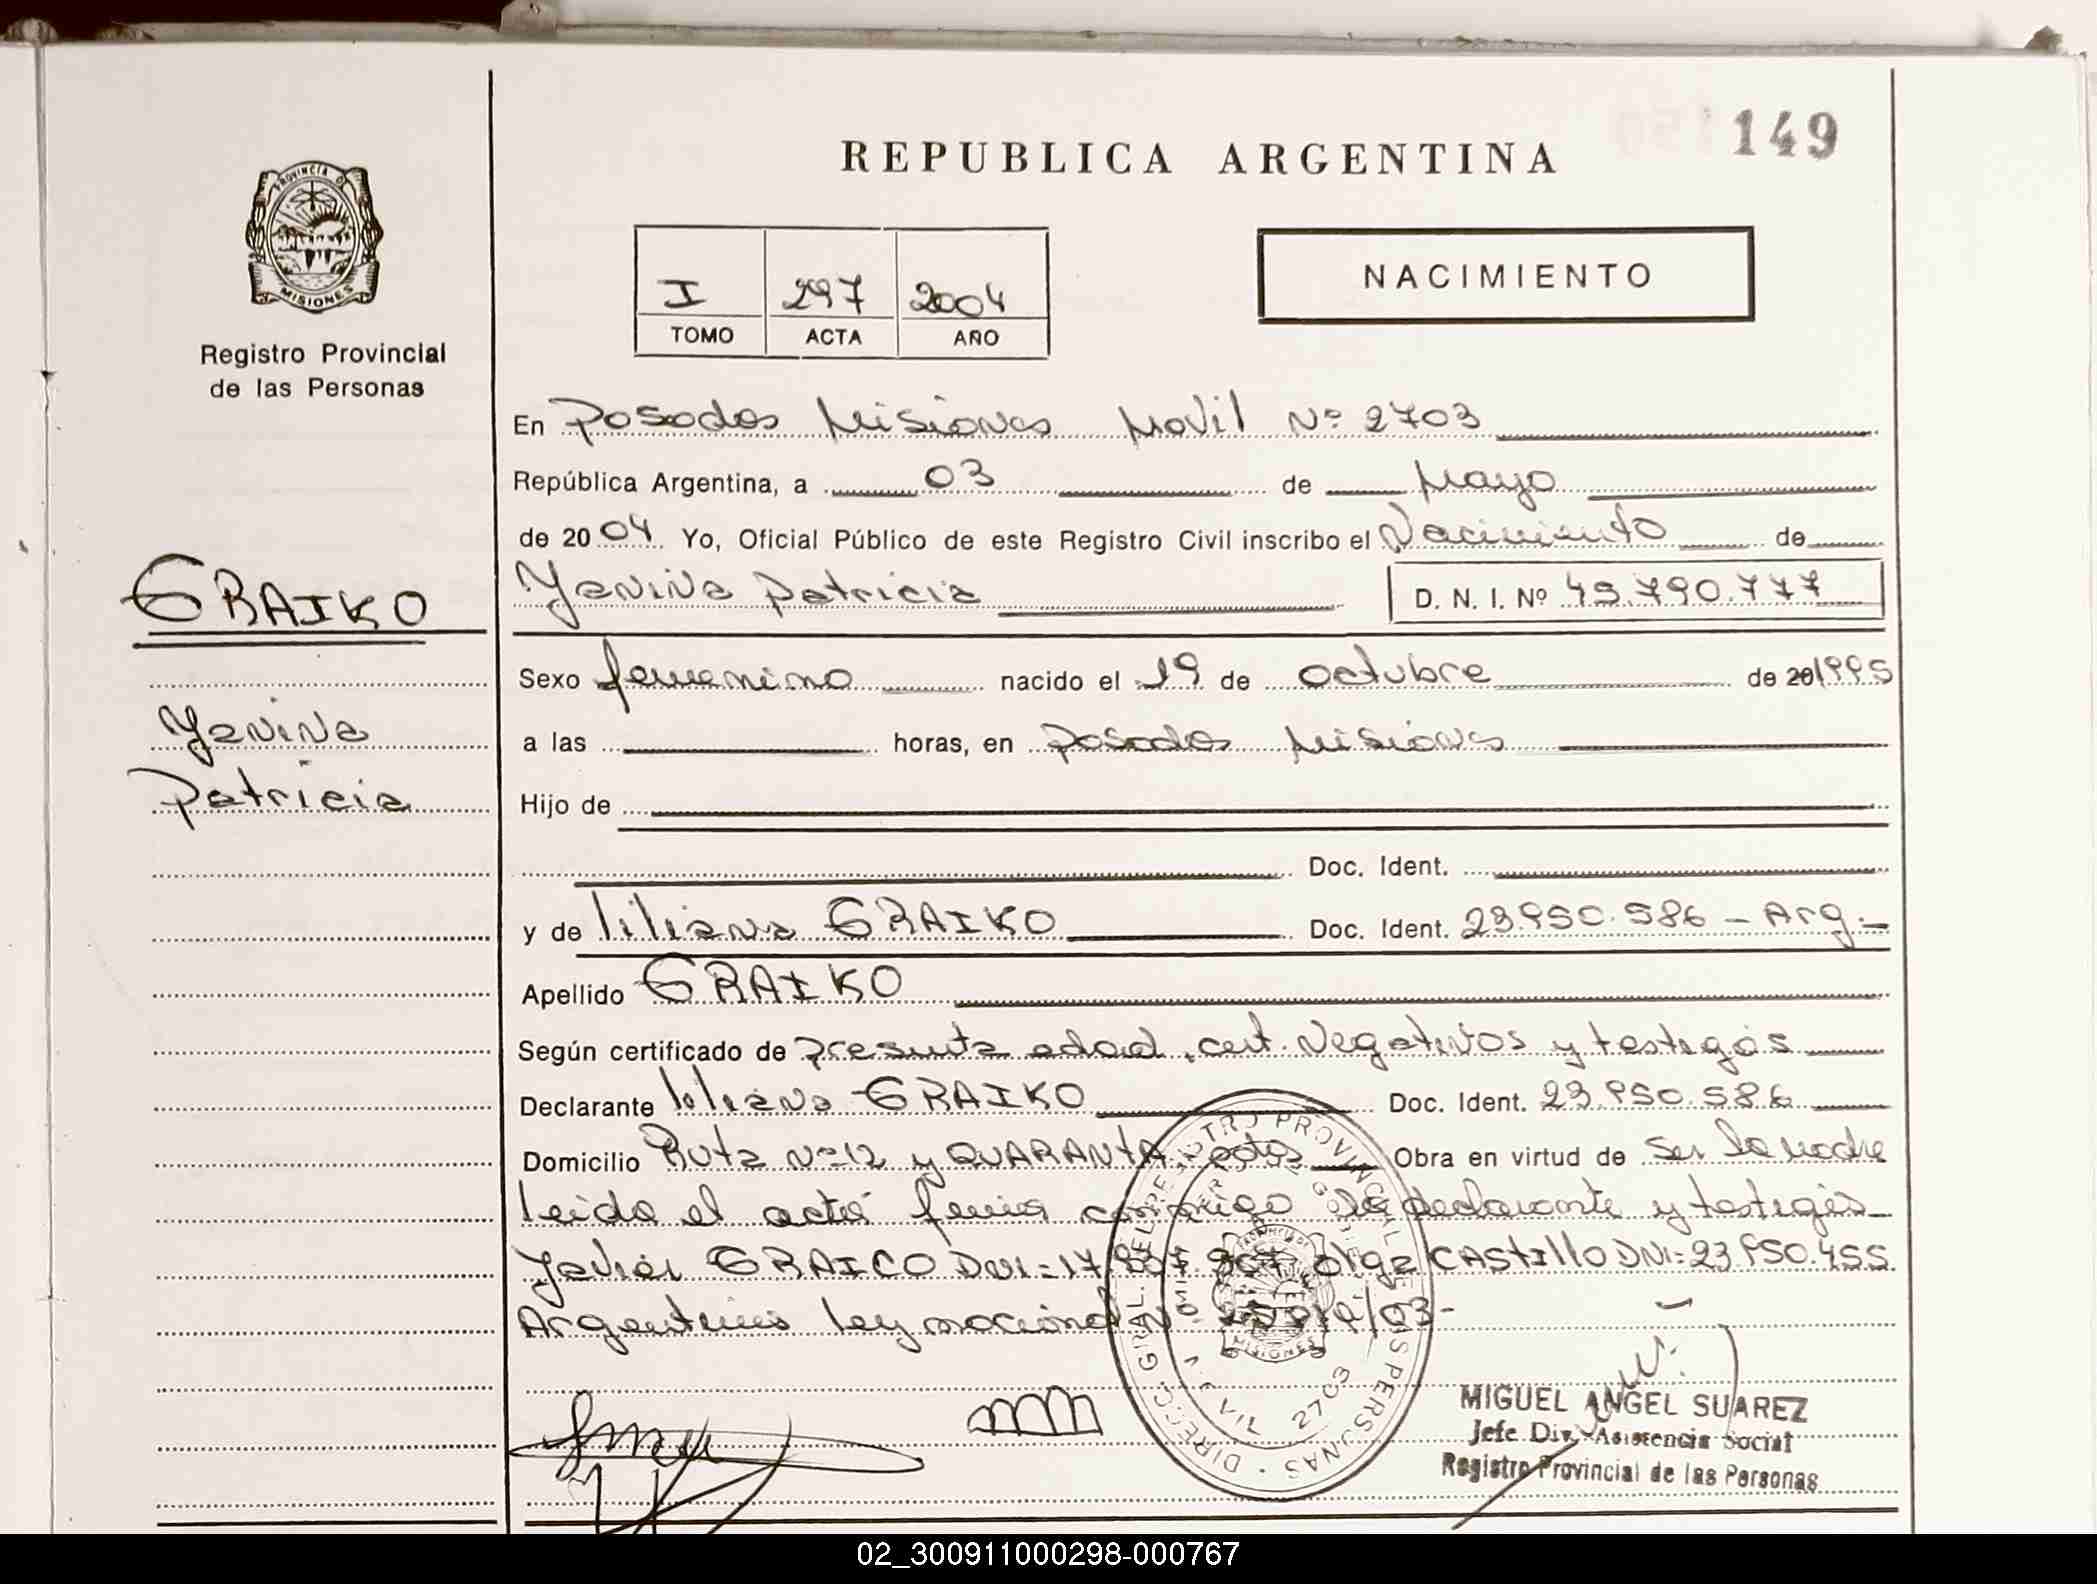 149
REPUBLICA ARGENTINA
PROVINCIA DE
MISIONES
Registro Provincial
de las Personas
NACIMIENTO
I 297 2004
TOMO ACTA AÑO
En Posadas Misiones Movil Nº 2703
República Argentina, a 03 de Mayo
de 2004 Yo, Oficial Público de este Registro Civil inscribo el Nacimiento de
GRAIKO
Yanina Patricia D. N. I. Nº 45.790.777
Sexo femenino nacido el 19 de octubre de 20 1995
Yanina
a las horas, en Posadas Misiones
Patricia
Hijo de
Doc. Ident.
y de liliana GRAIKO Doc. Ident. 23.950.586 - Arg.-
Apellido GRAIKO
Según certificado de presunta edad, cert. Negativos y testigos
Declarante liliana GRAIKO Doc. Ident. 23.950.586
Domicilio Ruta Nº 12 y QUARANTA Pdas Obra en virtud de ser la madre
leida el acta firma conmigo la declarante y testigos
Javier GRAICO DNI=17 907 Olga CASTILLO DNI=23.950.455
Argentinos ley nacional Nº /03-
DIRECC. GRAL. DEL REGISTRO PROVINCIAL DE LAS PERSONAS
MISIONES
2703
MIGUEL ANGEL SUAREZ
Jefe Div. Asistencia Social
Registro Provincial de las Personas
02_300911000298-000767